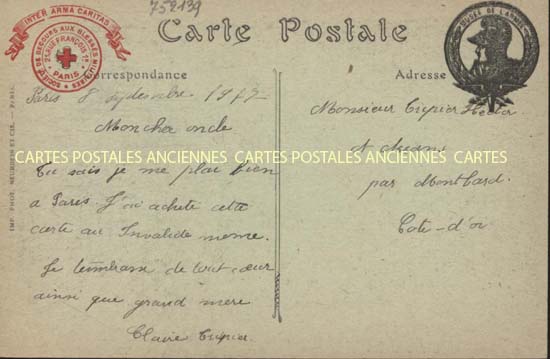 752139
INTER ARMA CARITAS
SOCIÉTÉ DE SECOURS AUX BLESSÉS MILITAIRES
21 RUE FRANÇOIS 1er
PARIS
Carte Postale
MUSÉE DE L'ARMÉE
Correspondance
Adresse
Paris 8 septembre
Mon cher oncle
Tu sais je me plai bien
a Paris. J'ai acheté cette
carte au Invalide meme.
Je t'embrasse de tout cœur
ainsi que grand mere
Claire
Monsieur
par Montbard
Cote-d'or
CARTES POSTALES ANCIENNES CARTES POSTALES ANCIENNES CARTES
IMP. PHOT. NEURDEIN ET CIE. - PARIS